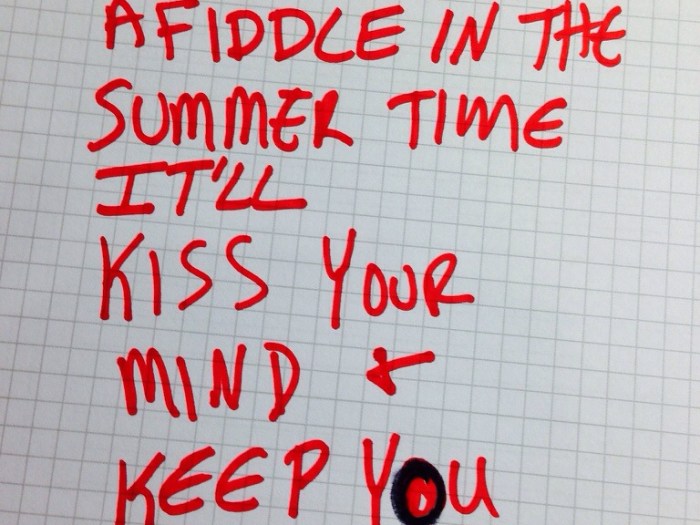 A FIDDLE IN THE
SUMMER TIME
IT'LL
KISS YOUR
MIND &
KEEP YOU